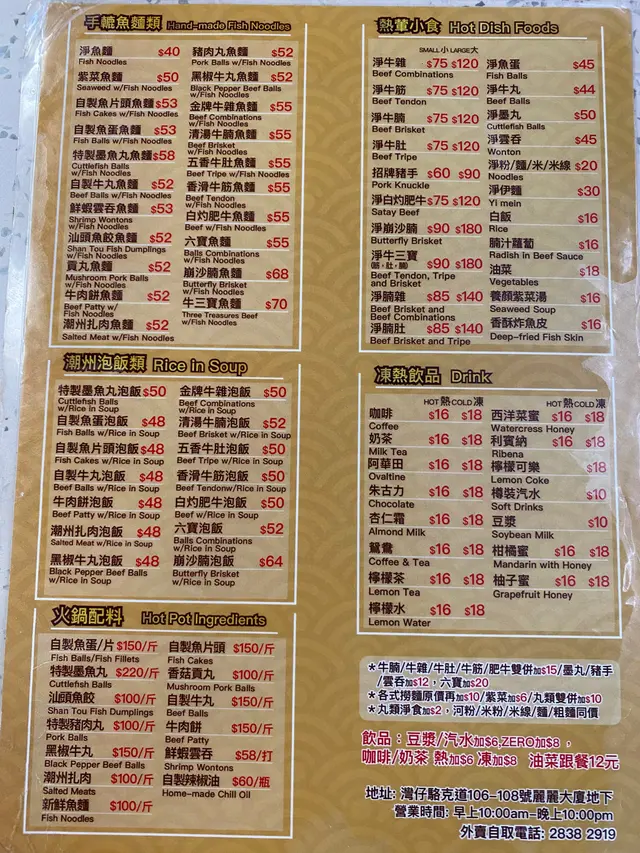 手轆魚麵類 Hand-made Fish Noodles
淨魚麵 $40
Fish Noodles
紫菜魚麵 $50
Seaweed w/Fish Noodles
自製魚片頭魚麵 $53
Fish Cakes w/Fish Noodles
自製魚蛋魚麵 $53
Fish Balls w/Fish Noodles
特製墨魚丸魚麵 $58
Cuttlefish Balls
w/Fish Noodles
自製牛丸魚麵 $52
Beef Balls w/Fish Noodles
鮮蝦雲吞魚麵 $53
Shrimp Wontons
w/Fish Noodles
汕頭魚餃魚麵 $52
Shan Tou Fish Dumplings
w/Fish Noodles
貢丸魚麵 $52
Mushroom Pork Balls
w/Fish Noodles
牛肉餅魚麵 $52
Beef Patty w/
Fish Noodles
潮州扎肉魚麵 $52
Salted Meat w/Fish Noodles
豬肉丸魚麵 $52
Pork Balls w/Fish Noodles
黑椒牛丸魚麵 $52
Black Pepper Beef Balls
w/Fish Noodles
金牌牛雜魚麵 $55
Beef Combinations
w/Fish Noodles
清湯牛腩魚麵 $55
Beef Brisket
w/Fish Noodles
五香牛肚魚麵 $55
Beef Tripe w/Fish Noodles
香滑牛筋魚麵 $55
Beef Tendon
w/Fish Noodles
白灼肥牛魚麵 $55
Beef w/Fish Noodles
六寶魚麵 $55
Balls Combinations
w/Fish Noodles
崩沙腩魚麵 $68
Butterfly Brisket
w/Fish Noodles
牛三寶魚麵 $70
Three Treasures Beef
w/Fish Noodles
潮州泡飯類 Rice in Soup
特製墨魚丸泡飯 $50
Cuttlefish Balls
w/Rice in Soup
自製魚蛋泡飯 $48
Fish Balls w/Rice in Soup
自製魚片頭泡飯 $48
Fish Cakes w/Rice in Soup
自製牛丸泡飯 $48
Beef Balls w/Rice in Soup
牛肉餅泡飯 $48
Beef Patty w/Rice in Soup
潮州扎肉泡飯 $48
Salted Meat w/Rice in Soup
黑椒牛丸泡飯 $48
Black Pepper Beef Balls
w/Rice in Soup
金牌牛雜泡飯 $50
Beef Combinations
w/Rice in Soup
清湯牛腩泡飯 $52
Beef Brisket w/Rice in Soup
五香牛肚泡飯 $50
Beef Tripe w/Rice in Soup
香滑牛筋泡飯 $50
Beef Tendonw/Rice in Soup
白灼肥牛泡飯 $50
Beef w/Rice in Soup
六寶泡飯 $52
Balls Combinations
w/Rice in Soup
崩沙腩泡飯 $64
Butterfly Brisket
w/Rice in Soup
火鍋配料 Hot Pot Ingredients
自製魚蛋/片 $150/斤
Fish Balls/Fish Fillets
特製墨魚丸 $220/斤
Cuttlefish Balls
汕頭魚餃 $100/斤
Shan Tou Fish Dumplings
特製豬肉丸 $100/斤
Pork Balls
黑椒牛丸 $150/斤
Black Pepper Beef Balls
潮州扎肉 $100/斤
Salted Meats
新鮮魚麵 $100/斤
Fish Noodles
自製魚片頭 $150/斤
Fish Cakes
香菇貢丸 $100/斤
Mushroom Pork Balls
自製牛丸 $150/斤
Beef Balls
牛肉餅 $150/斤
Beef Patty
鮮蝦雲吞 $58/打
Shrimp Wontons
自製辣椒油 $60/瓶
Home-made Chill Oil
熱葷小食 Hot Dish Foods
SMALL小 LARGE大
淨牛雜 $75 $120
Beef Combinations
淨牛筋 $75 $120
Beef Tendon
淨牛腩 $75 $120
Beef Brisket
淨牛肚 $75 $120
Beef Tripe
招牌豬手 $60 $90
Pork Knuckle
淨白灼肥牛 $75 $120
Satay Beef
淨崩沙腩 $90 $180
Butterfly Brisket
淨牛三寶 $90 $180
(筋,肚,腩)
Beef Tendon, Tripe
and Brisket
淨腩雜 $85 $140
Beef Brisket and
Beef Combinations
淨腩肚 $85 $140
Beef Brisket and Tripe
淨魚蛋 $45
Fish Balls
淨牛丸 $44
Beef Balls
淨墨丸 $50
Cuttlefish Balls
淨雲吞 $45
Wonton
淨粉/麵/米/米線 $20
Noodles
淨伊麵 $30
Yi mein
白飯 $16
Rice
腩汁蘿蔔 $16
Radish in Beef Sauce
油菜 $18
Vegetables
養顏紫菜湯 $16
Seaweed Soup
香酥炸魚皮 $16
Deep-fried Fish Skin
凍熱飲品 Drink
HOT 熱 COLD 凍
咖啡 $16 $18
Coffee
奶茶 $16 $18
Milk Tea
阿華田 $16 $18
Ovaltine
朱古力 $16 $18
Chocolate
杏仁霜 $16 $18
Almond Milk
鴛鴦 $16 $18
Coffee & Tea
檸檬茶 $16 $18
Lemon Tea
檸檬水 $16 $18
Lemon Water
HOT 熱 COLD 凍
西洋菜蜜 $16 $18
Watercress Honey
利賓納 $16 $18
Ribena
檸檬可樂 $18
Lemon Coke
樽裝汽水 $10
Soft Drinks
豆漿 $10
Soybean Milk
柑橘蜜 $16 $18
Mandarin with Honey
柚子蜜 $16 $18
Grapefruit Honey
*牛腩/牛雜/牛肚/牛筋/肥牛雙併加$15/墨丸/豬手
/雲吞加$12，六寶加$20
*各式撈麵原價再加$10/紫菜加$6/丸類雙併加$10
*丸類淨食加$2，河粉/米粉/米線/麵/粗麵同價
飲品：豆漿/汽水加$6,ZERO加$8，
咖啡/奶茶 熱加$6 凍加$8 油菜跟餐12元
地址: 灣仔駱克道106-108號麗麗大廈地下
營業時間: 早上10:00am-晚上10:00pm
外賣自取電話: 2838 2919